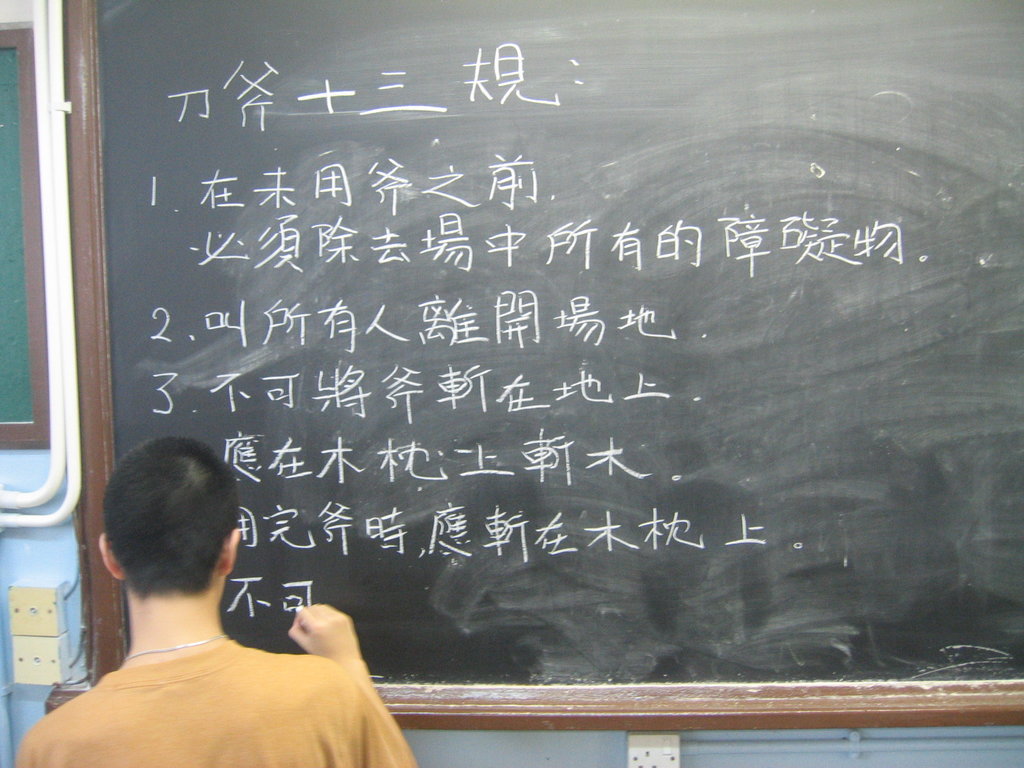 刀斧十三規：
1. 在未用斧之前,
必須除去場中所有的障礙物。
2. 叫所有人離開場地.
3. 不可將斧斬在地上.
應在木枕上斬木。
用完斧時,應斬在木枕上。
不可